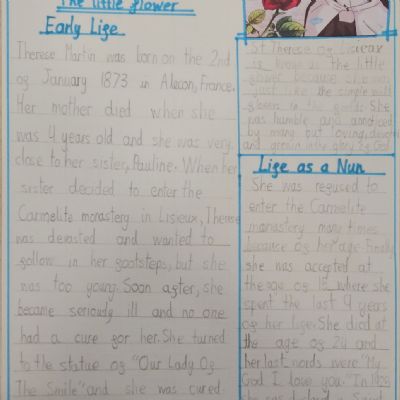 The little flower
Early Life
Therese Martin was born on the 2nd
of January 1873 in Alecon, France.
Her mother died when she
was 4 years old and she was very
close to her sister, Pauline. When her
sister decided to enter the
Carmelite monastery in Lisieux, Therese
was devasted and wanted to
follow in her footsteps, but she
was too young. Soon after, she
became seriously ill and no one
had a cure for her. She turned
to the statue of "Our Lady Of
The Smile" and she was cured.
St Therese of Lisieux
is known as the little
flower because she was
just like the simple wild
in the She
was humble and unnoticed
by many but loving,
and glory of God
Life as a Nun
She was refused to
enter the Carmelite
monastery many times
because of her age. Finally
she was accepted at
the age of 15 where she
spent the last 9 years
of her life. She died at
the age of 24 and
her last words were "My
God I love you." In
a Saint